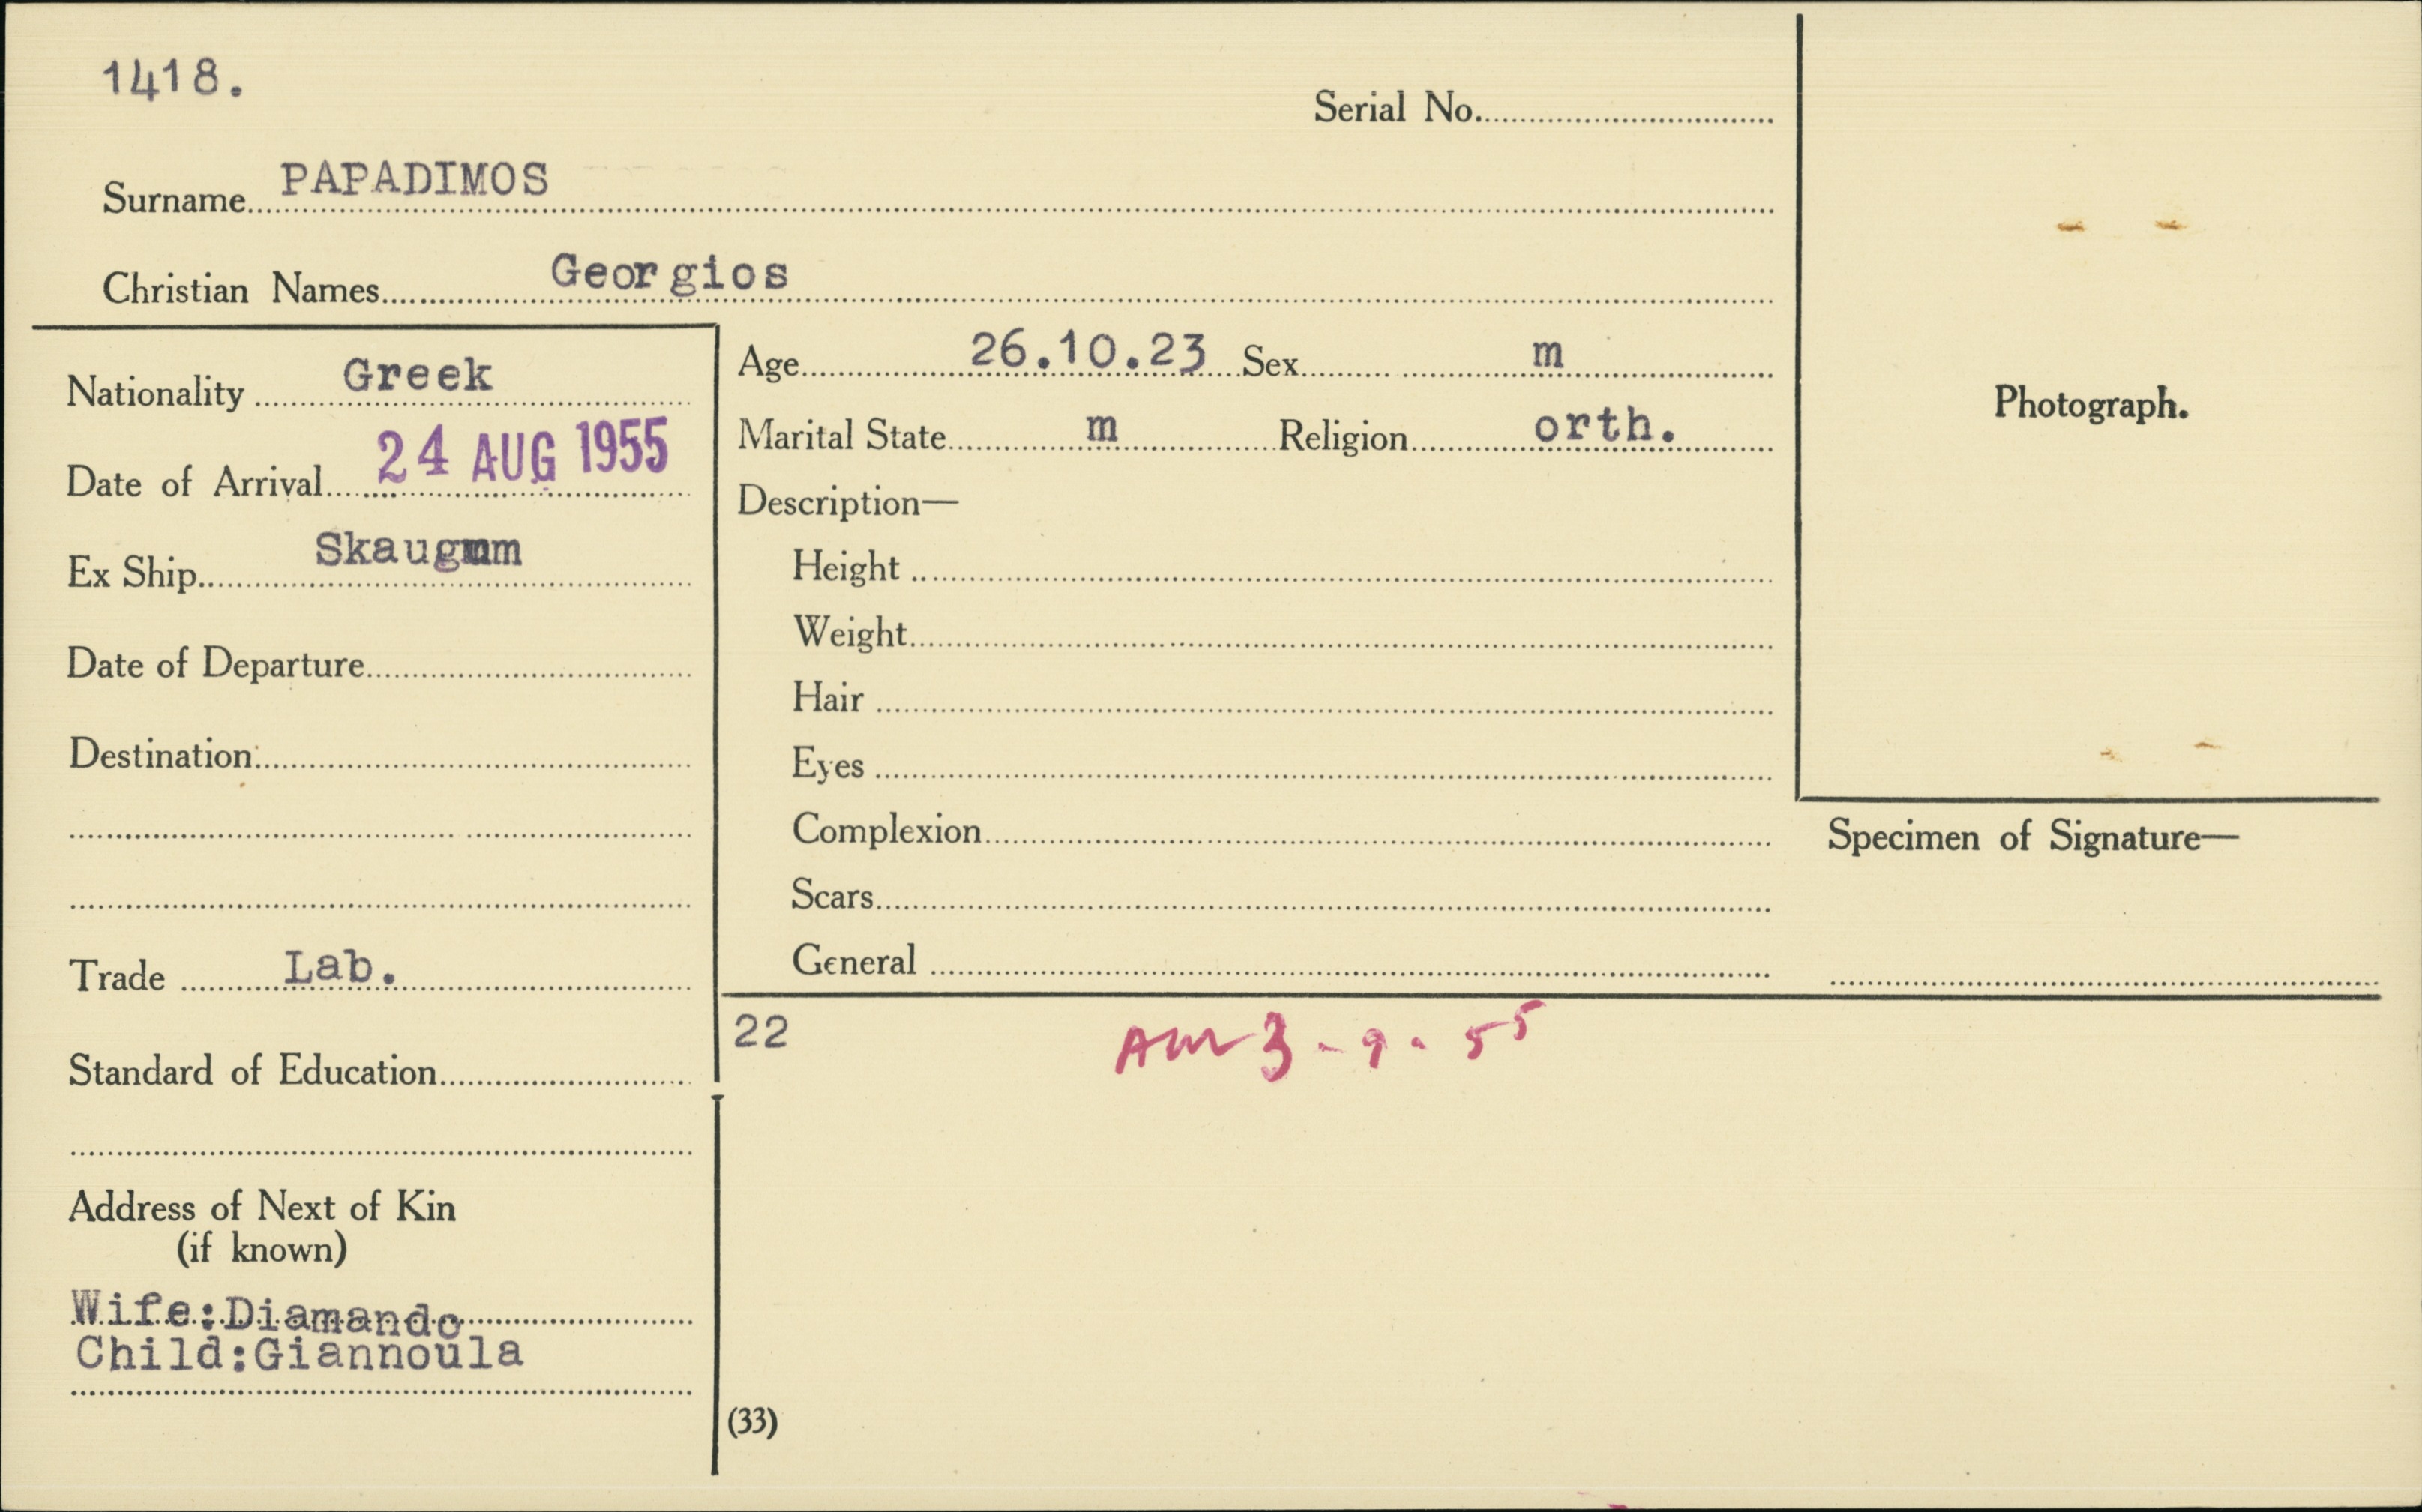 1418.
Serial No.
Surname PAPADIMOS
Christian Names Georgios
Nationality Greek
Date of Arrival 24 AUG 1955
Ex Ship
Date of Departure
Destination
Trade Lab.
Standard of Education
Address of Next of Kin
(if known)
Wife:Diamando
Child:Giannoula
Age 26.10.23 Sex m
Marital State m Religion orth.
Description—
Height
Weight
Hair
Eyes
Complexion
Scars
General
22
3-9-55
(33)
Photograph.
Specimen of Signature—